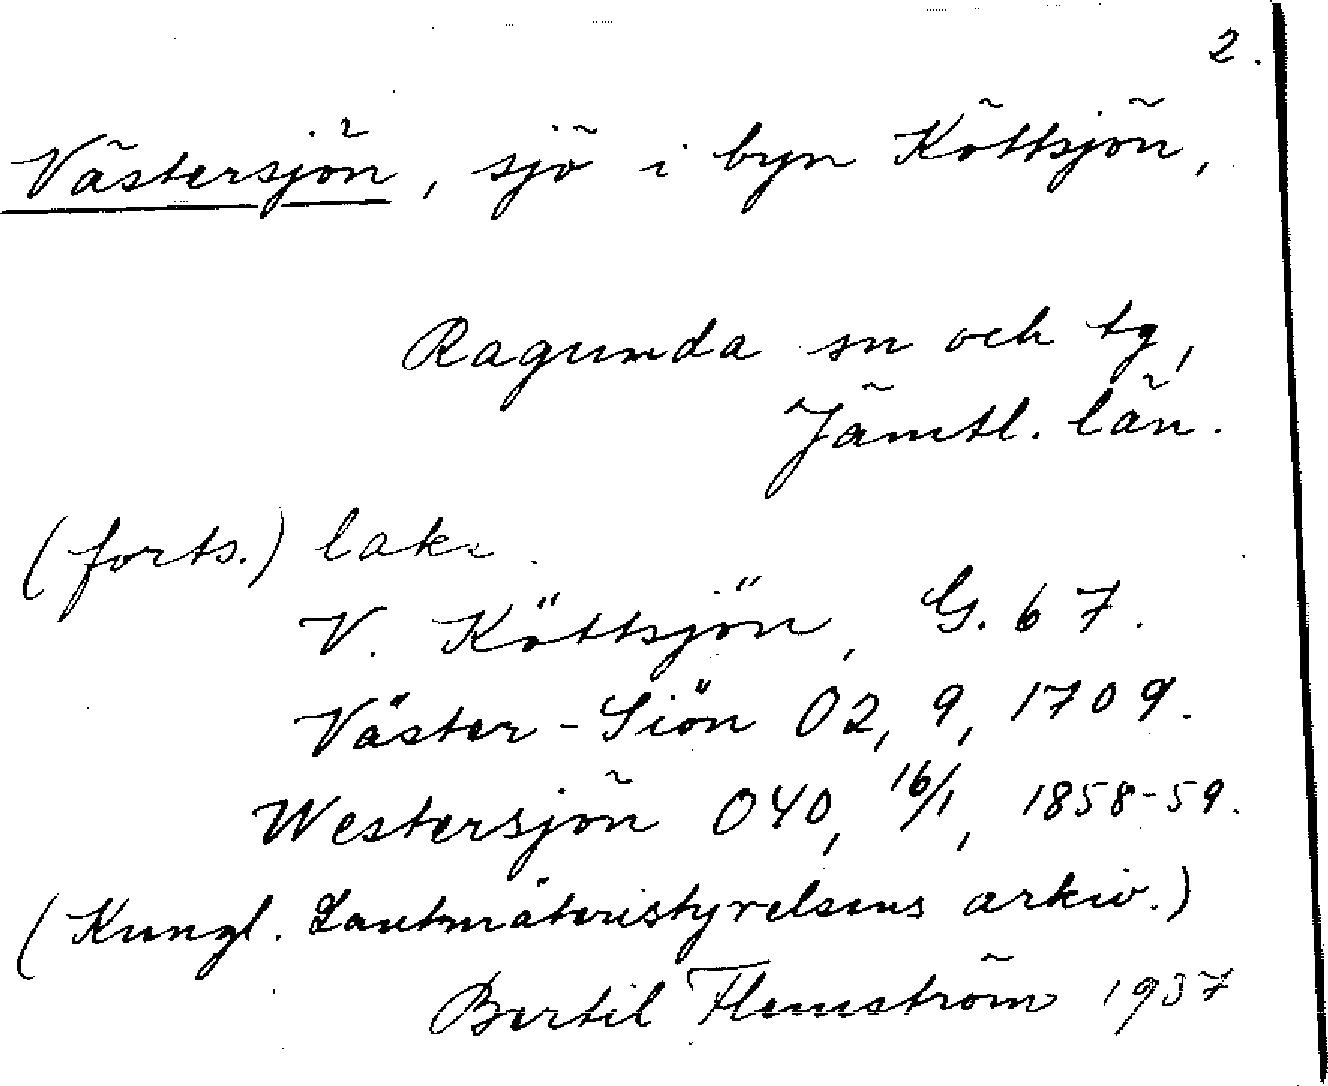 2.
Västersjön, sjö i byn Köttsjön,
Ragunda sn och tg,
Jämtl. län.
(forts.)
V. Köttsjön, G. 67.
Väster-Siön O2, 9, 1709.
Westersjön O40, 16/1, 1858-59.
(Kungl. Lantmäteristyrelsens arkiv.)
Bertil Flemström 1937